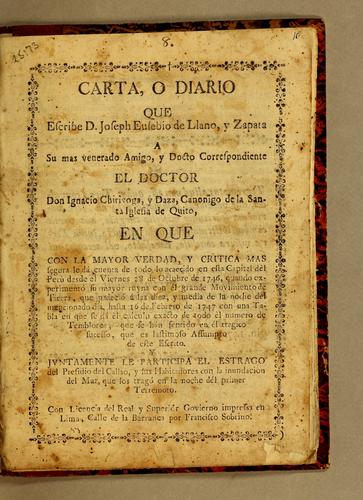 25173
8.
16
CARTA, O DIARIO
QUE
Escribe D. Joseph Eusebio de Llano, y Zapata
A
Su mas venerado Amigo, y Docto Correspondiente
EL DOCTOR
Don Ignacio Chiriboga, y Daza, Canonigo de la San-
ta Iglesia de Quito,
EN QUE
CON LA MAYOR VERDAD, Y CRITICA MAS
segura le dà cuenta de todo lo acaecido en esta Capital del
Perù desde el Viernes 28 de Octubre de 1746, quando ex-
perimentò su mayor ruyna con el grande Movimiento de
Tierra, que padeciò à las diez, y media de la noche del
mencionado dia, hasta 16 de Febrero de 1747 con una Ta-
bla en que se dà el calculo exacto de todo el numero de
Temblores, que se han sentido en el tragico
sucesso, que es lastimoso Assumpto
de este Escrito.
Y
JVNTAMENTE LE PARTICIPA EL ESTRAGO
del Presidio del Callao, y sus Habitadores con la inundacion
del Mar, que los tragò en la noche dèl primer
Terremoto.
Con Licencia del Real y Superiór Govierno impressa en
Lima, Calle de la Barranca por Francisco Sobrino.